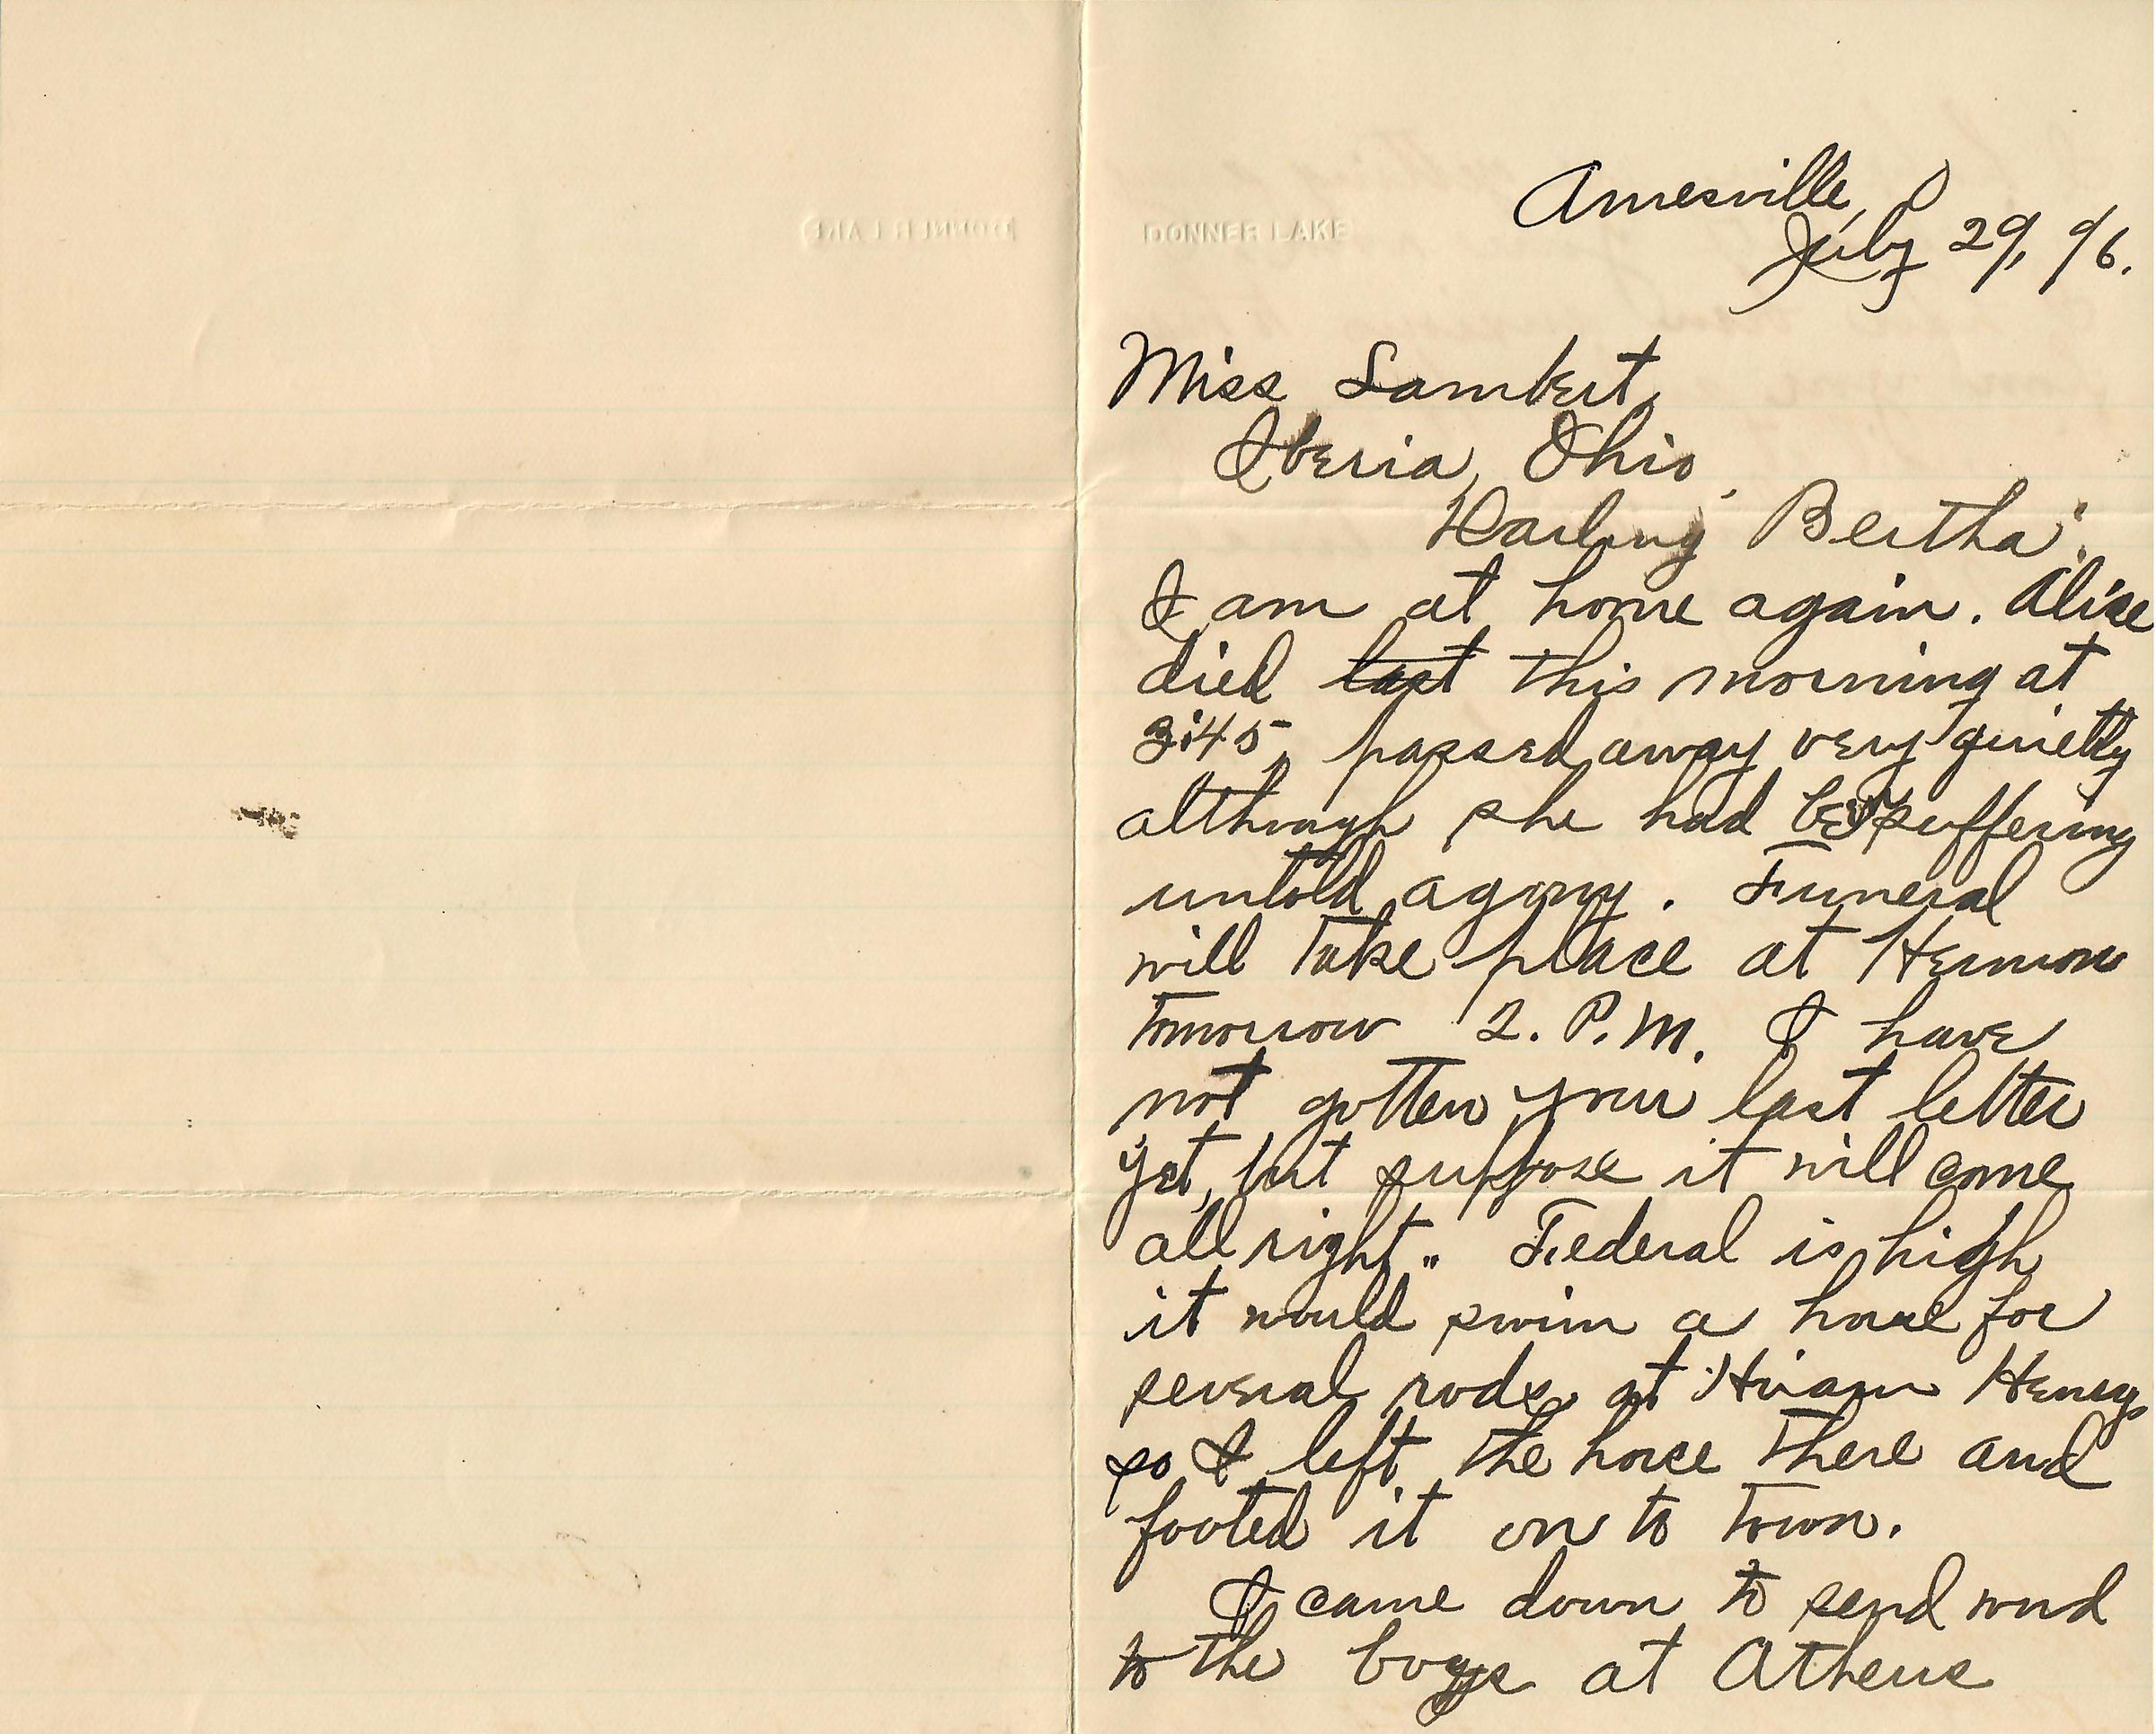 DONNER LAKE
Amesville, O
July 29, 96.
Miss Lambert,
Iberia, Ohio,
Darling Bertha:
I am at home again. Alice
died last this morning at
3:45, passed away very quietly
although she had suffering
untold agony. Funeral
will take place at Hermon
tomorrow 2. P.M. I have
not gotten your last letter
yet, but suppose it will come
all right. Federal is high
it would swim a horse for
several rods at Hiram Henrys
so I left the horse there and
footed it on to town.
I came down to send word
to the boys at Athens